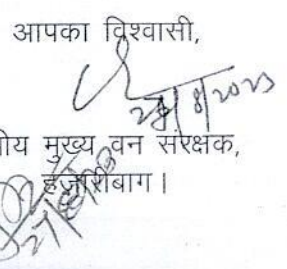 आपका विश्वासी,
28/8/2023
ीय मुख्य वन संरक्षक,
हजारीबाग।